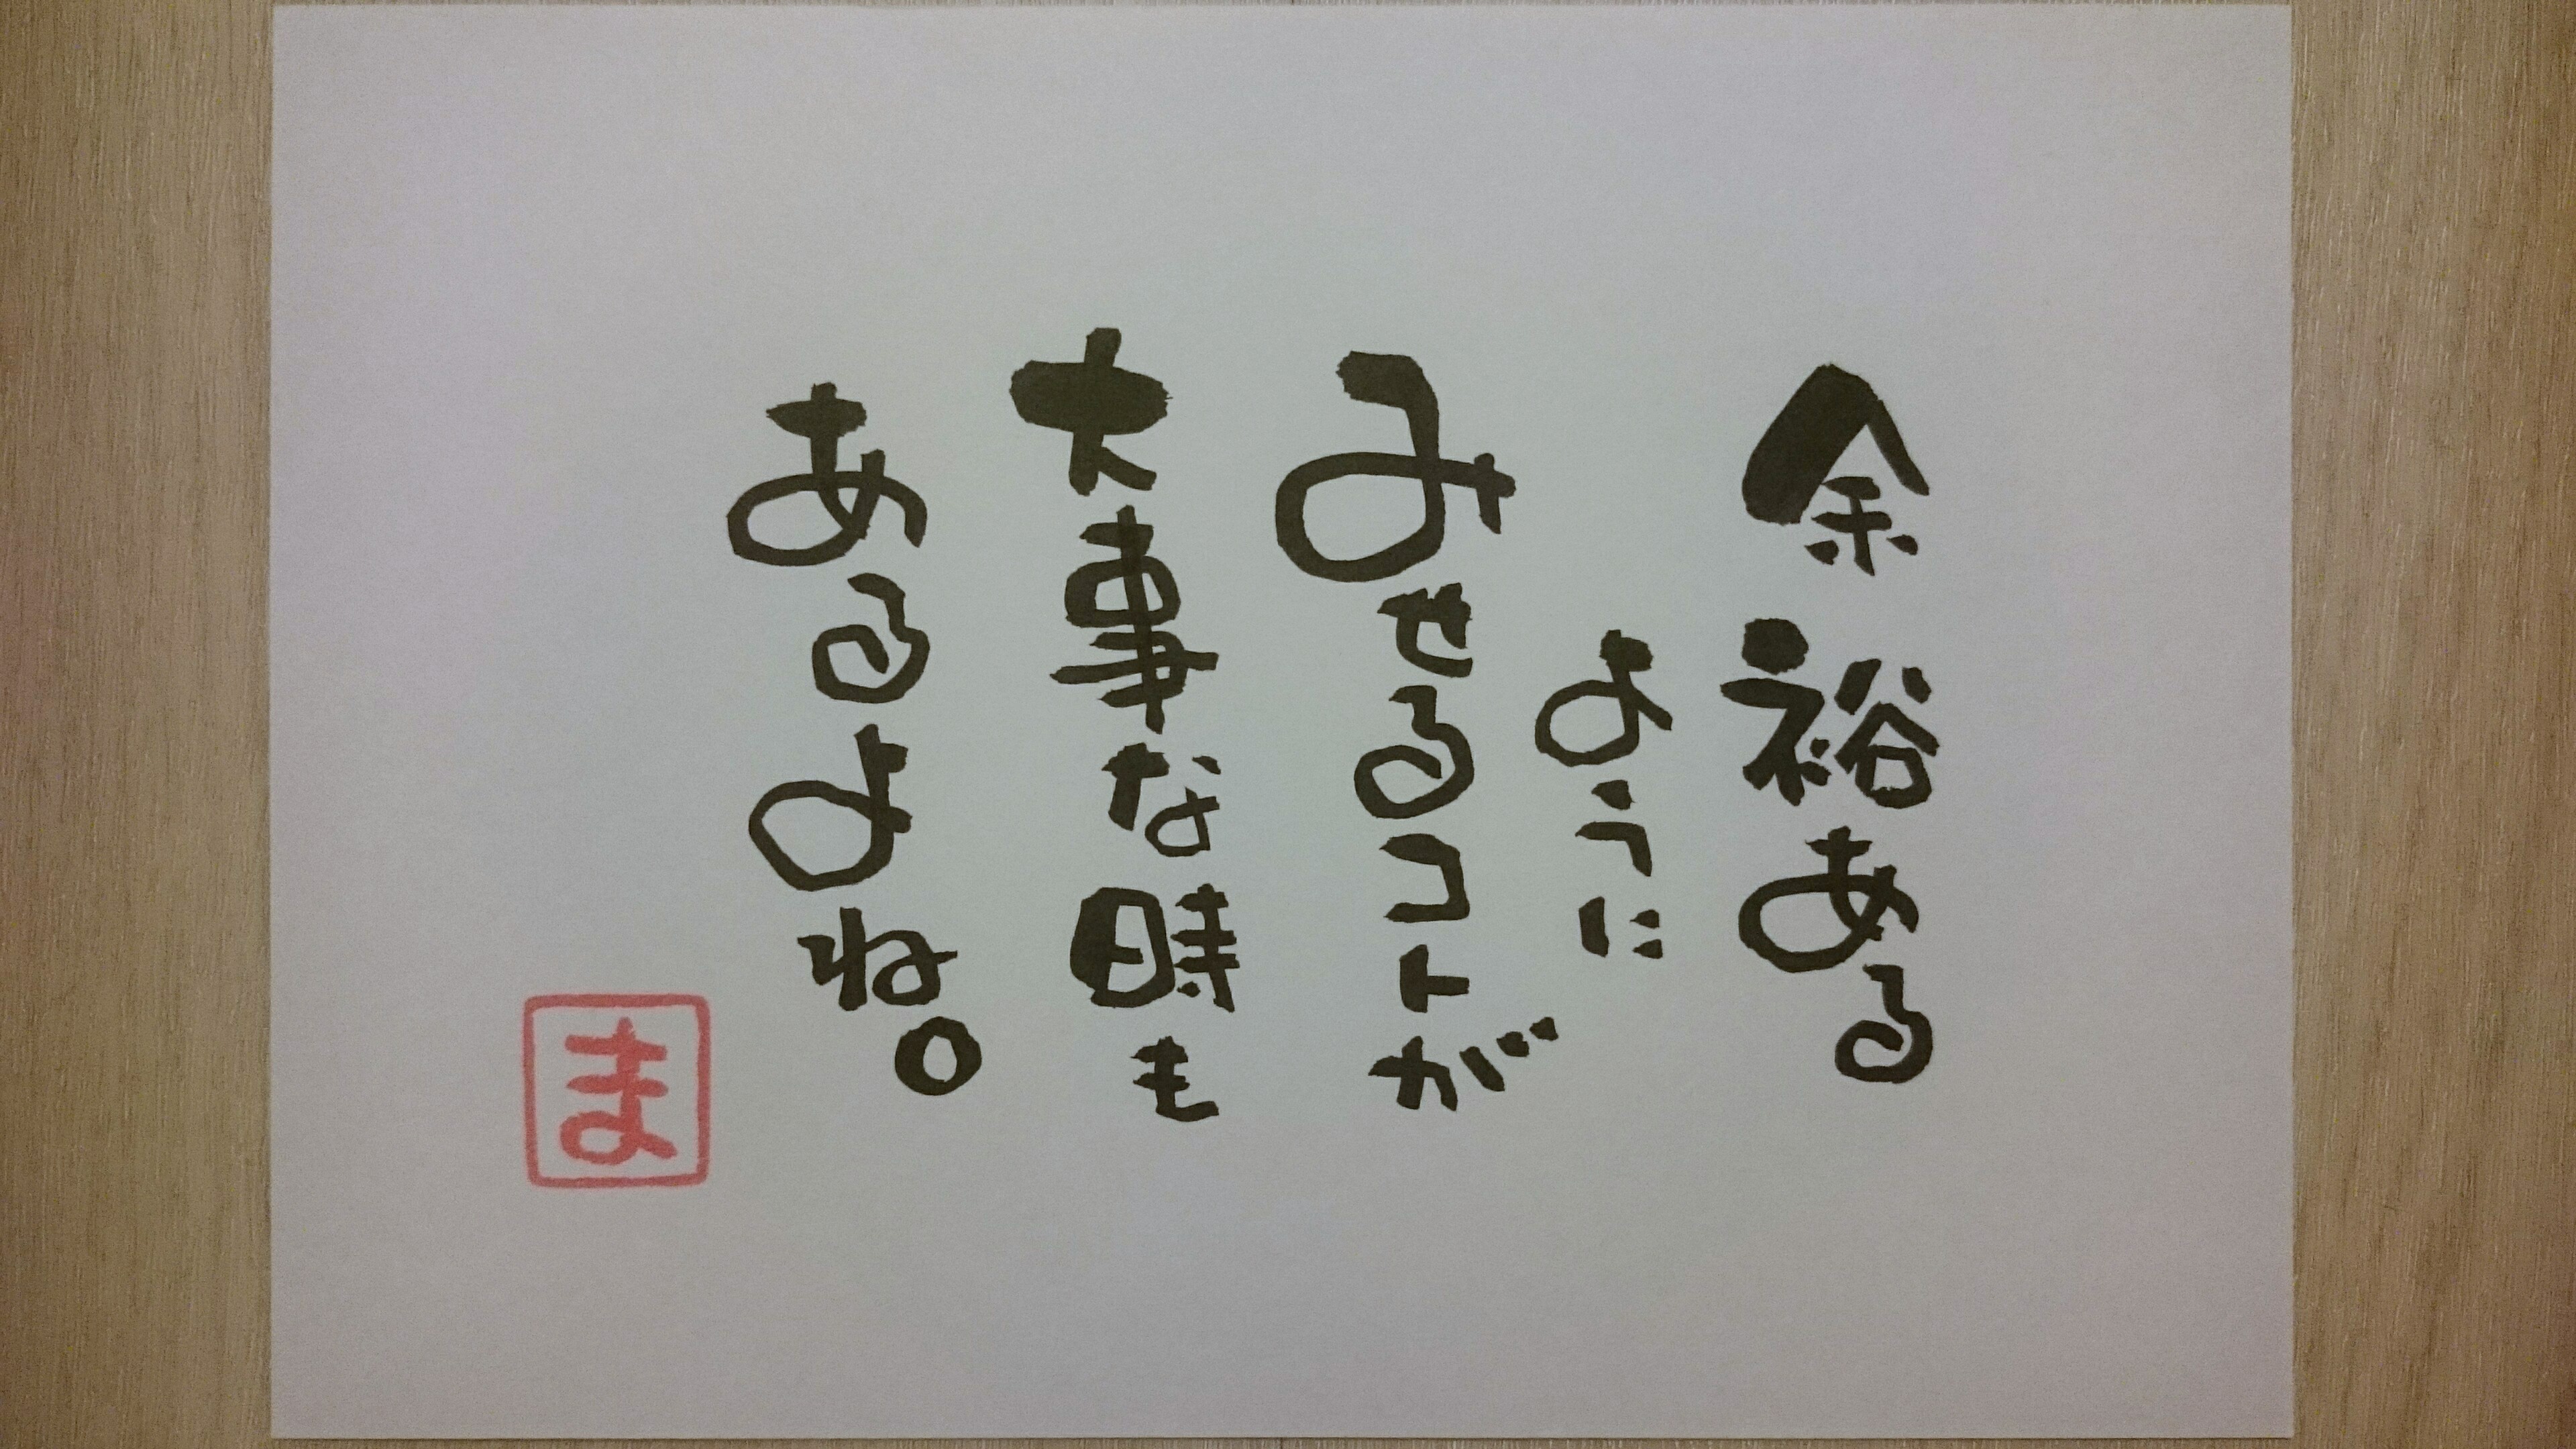 余裕ある
ように
みせるコトが
大事な時も
あるよね。
ま